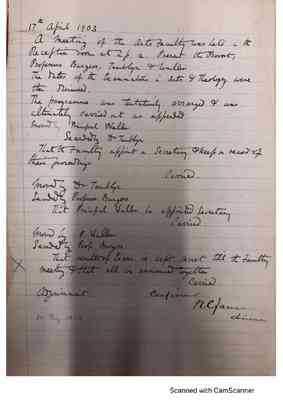 17th April 1903
A Meeting of the Arts Faculty was held in the
Reception Room at 2 p.m. Present the Provost,
Professors Burgess, & Waller
The Dates of the Examination in Arts & Theology were
then Discussed.
The programme was tentatively arranged & was
ultimately carried out as appended
Moved by Principal Waller
Seconded by Dr
That the Faculty appoint a Secretary & keep a record of
their proceedings
Carried
Moved by Dr
Seconded by Professor Burgess
That Principal Waller be appointed Secretary
Carried
Moved by P. Waller
Seconded by Prof. Burgess
That results of Exams be kept until the Faculty
meeting & that all be announced together
Carried
Adjournment. Confirmed
Scanned with CamScanner